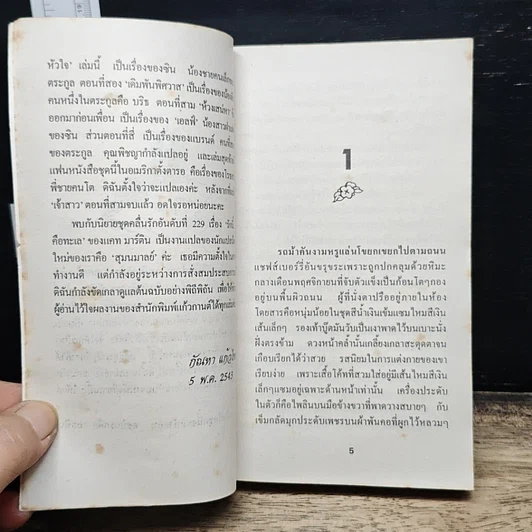 หัวใจ' เล่มนี้ เป็นเรื่องของซิน น้องชายคนเล็ก
ตระกูล ตอนที่สอง 'เดิมพันพิศวาส' เป็นเรื่องของ
คนหนึ่งในตระกูลคือ บริธ ตอนที่สาม 'ห้วงเสน่หา'
ออกมาก่อนเพื่อน เป็นเรื่องของ 'เอลฟี่' น้องสาว
ของซิน ส่วนตอนที่สี่ เป็นเรื่องของแบรนด์
ของตระกูล คุณพิชญากำลังแปลอยู่ และเล่มสุดท้าย
แฟนหนังสือชุดนี้ในอเมริกาตั้งตารอ คือเรื่องของ
พี่ชายคนโต ดิฉันตั้งใจว่าจะแปลเองค่ะ หลังจาก
'เจ้าสาว' ตอนที่สามจบแล้ว อดใจรอหน่อยนะคะ
พบกับนิยายชุดคลื่นรักอันดับที่ 229 เรื่อง
คือทะเล' ของแคท มาร์ติน เป็นงานแปลของนักแปล
ใหม่ของเราคือ 'สุมนมาลย์' ค่ะ เธอมีความตั้งใจ
ทำงานดี แต่กำลังอยู่ระหว่างการสั่งสมประสบ
ดิฉันกำลังขัดเกลาดูแลต้นฉบับอย่างพิถีพิถัน เพื่อ
ผู้อ่านไว้ใจผลงานของสำนักพิมพ์แก้วกานต์ได้ทุก
กัณหา แก้ว
5 พ.ค. 2543
1
รถม้าคันงามหรูแล่นโขยกเขยกไปตามถนน
แชฟส์เบอร์รี่อันขรุขระเพราะถูกปกคลุมด้วยหิมะ
กลางเดือนพฤศจิกายนที่จับตัวแข็งเป็นก้อนโตๆกอง
อยู่บนพื้นผิวถนน ผู้ที่นั่งตาปรืออยู่ภายในห้อง
โดยสารคือหนุ่มน้อยในชุดสีน้ำเงินเข้มแซมไหมสีเงิน
เส้นเล็กๆ รองเท้าบู๊ตมันวับเป็นเงาพาดไว้บนเบาะนั่ง
ฝั่งตรงข้าม ดวงหน้านั้นเกลี้ยงเกลาสะดุดตาจน
เกือบเรียกได้ว่าสวย รสนิยมในการแต่งกายของเขา
เรียบง่าย เพราะเสื้อโค้ทที่สวมใส่อยู่มีเส้นไหมสีเงิน
เล็กๆแซมอยู่เฉพาะด้านหน้าเท่านั้น เครื่องประดับ
ในตัวก็คือไพลินบนมือข้างขวาที่พาดวางสบายๆ กับ
เข็มกลัดมุกประดับเพชรบนผ้าพันคอที่ผูกไว้หลวมๆ
5